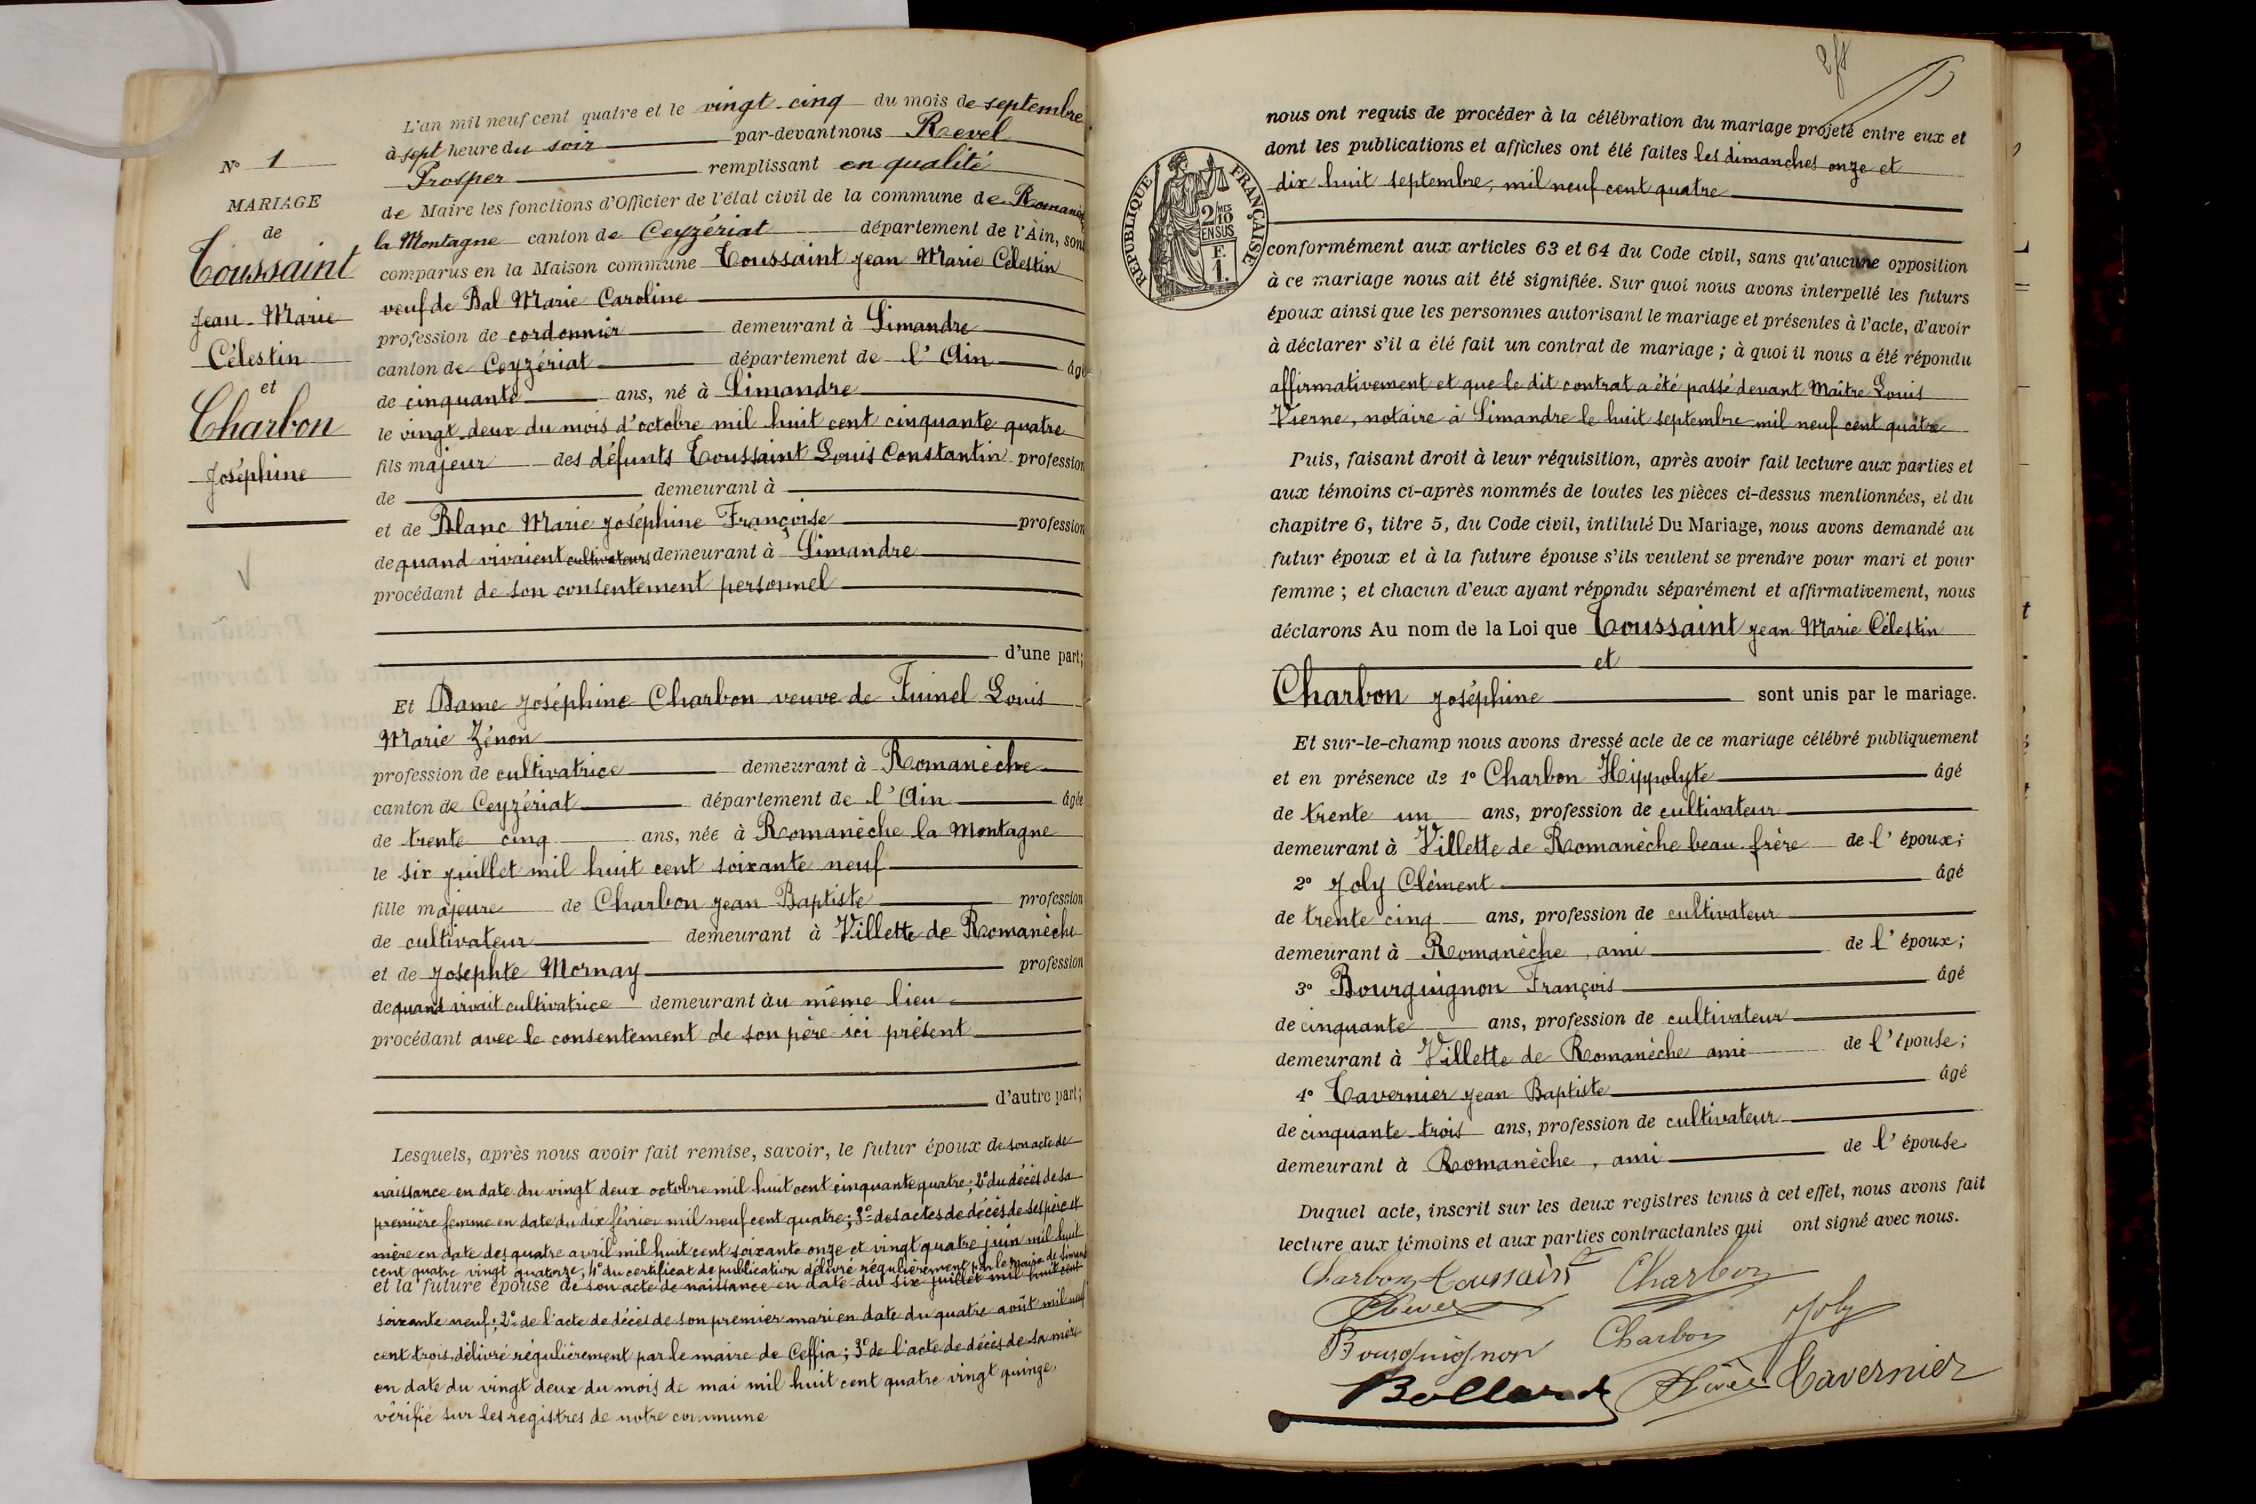 N° 1
MARIAGE
de
Toussaint
Jean-Marie
Célestin
et
Charbon
Joséphine
L'an mil neuf cent quatre et le vingt-cinq du mois de septembre
à sept heure du soir par-devant nous Revel
Prosper remplissant en qualité
de Maire les fonctions d'Officier de l'état civil de la commune de Romanèche
la Montagne canton de Ceyzériat département de l'Ain, sont
comparus en la Maison commune Toussaint Jean Marie Célestin
veuf de Bal Marie Caroline
profession de cordonnier demeurant à Simandre
canton de Ceyzériat département de l'Ain âgé
de cinquante ans, né à Simandre
le vingt-deux du mois d'octobre mil huit cent cinquante quatre
fils majeur des défunts Toussaint Louis Constantin profession
de demeurant à
et de Blanc Marie Joséphine Françoise profession
de quand vivaient cultivateurs demeurant à Simandre
procédant de son consentement personnel
d'une part;
Et Dame Joséphine Charbon veuve de Fuinel Louis
Marie Zénon
profession de cultivatrice demeurant à Romanèche
canton de Ceyzériat département de l'Ain âgée
de trente cinq ans, née à Romanèche la Montagne
le six juillet mil huit cent soixante neuf
fille majeure de Charbon Jean Baptiste profession
de cultivateur demeurant à Villette de Romanèche
et de Josephte Mornay profession
de quand vivait cultivatrice demeurant au même lieu
procédant avec le consentement de son père ici présent
d'autre part;
Lesquels, après nous avoir fait remise, savoir, le futur époux de son acte de
naissance en date du vingt deux octobre mil huit cent cinquante quatre; 2° du décès de sa
première femme en date du dix février mil neuf cent quatre; 3° des actes de décès de ses père et
mère en date des quatre avril mil huit cent soixante onze et vingt quatre juin mil huit
cent quatre vingt quatorze; 4° du certificat de publication délivré régulièrement par le maire de Simandre
et la future épouse de son acte de naissance en date du six juillet mil huit cent
soixante neuf; 2° de l'acte de décès de son premier mari en date du quatre août mil neuf
cent trois, délivré régulièrement par le maire de Ceffia; 3° de l'acte de décès de sa mère
en date du vingt deux du mois de mai mil huit cent quatre vingt quinze
vérifié sur les registres de notre commune
nous ont requis de procéder à la célébration du mariage projeté entre eux et
dont les publications et affiches ont été faites les dimanches onze et
dix huit septembre, mil neuf cent quatre
RÉPUBLIQUE FRANÇAISE
2/10MES
EN SUS
F.
1.
conformément aux articles 63 et 64 du Code civil, sans qu'aucune opposition
à ce mariage nous ait été signifiée. Sur quoi nous avons interpellé les futurs
époux ainsi que les personnes autorisant le mariage et présentes à l'acte, d'avoir
à déclarer s'il a été fait un contrat de mariage; à quoi il nous a été répondu
affirmativement et que le dit contrat a été passé devant Maître Louis
Vierne, notaire à Simandre le huit septembre mil neuf cent quatre
Puis, faisant droit à leur réquisition, après avoir fait lecture aux parties et
aux témoins ci-après nommés de toutes les pièces ci-dessus mentionnées, et du
chapitre 6, titre 5, du Code civil, intitulé Du Mariage, nous avons demandé au
futur époux et à la future épouse s'ils veulent se prendre pour mari et pour
femme; et chacun d'eux ayant répondu séparément et affirmativement, nous
déclarons Au nom de la Loi que Toussaint Jean Marie Célestin
et
Charbon Joséphine sont unis par le mariage.
Et sur-le-champ nous avons dressé acte de ce mariage célébré publiquement
et en présence de 1° Charbon Hippolyte âgé
de trente un ans, profession de cultivateur
demeurant à Villette de Romanèche beau-frère de l'époux;
2° Joly Clément âgé
de trente cinq ans, profession de cultivateur
demeurant à Romanèche, ami de l'époux;
3° Bourguignon François âgé
de cinquante ans, profession de cultivateur
demeurant à Villette de Romanèche ami de l'épouse;
4° Tavernier Jean Baptiste âgé
de cinquante-trois ans, profession de cultivateur
demeurant à Romanèche, ami de l'épouse
Duquel acte, inscrit sur les deux registres tenus à cet effet, nous avons fait
lecture aux témoins et aux parties contractantes qui ont signé avec nous.
Charbon Toussaint Charbon
Bourguignon Charbon Joly
Tavernier